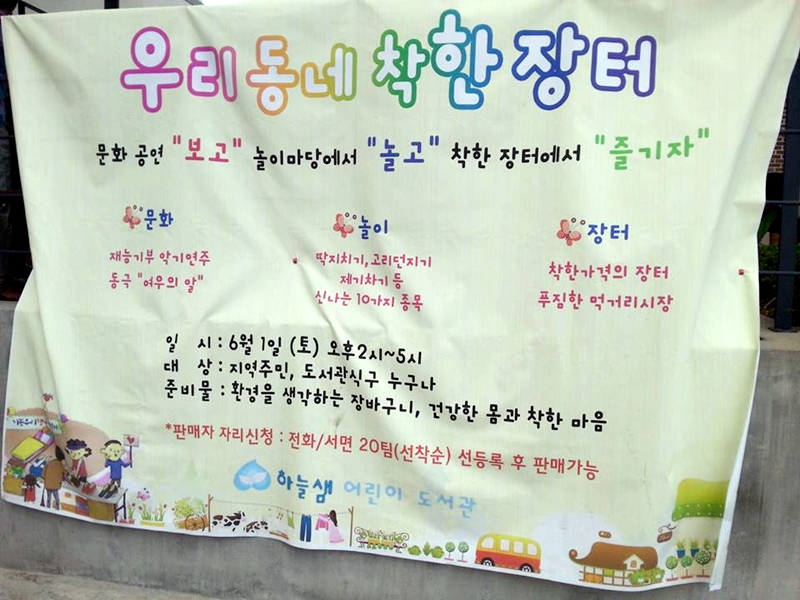 우리동네 착한 장터
문화 공연 "보고" 놀이마당에서 "놀고" 착한 장터에서 "즐기자"
문화
재능기부 악기연주
동극 "여우의 알"
놀이
딱지치기, 고리던지기
제기차기 등
신나는 10가지 종목
장터
착한가격의 장터
푸짐한 먹거리시장
일 시 : 6월 1일 (토) 오후2시~5시
대 상 : 지역주민, 도서관식구 누구나
준비물 : 환경을 생각하는 장바구니, 건강한 몸과 착한 마음
*판매자 자리신청 : 전화/서면 20팀(선착순) 선등록 후 판매가능
하늘샘 어린이 도서관